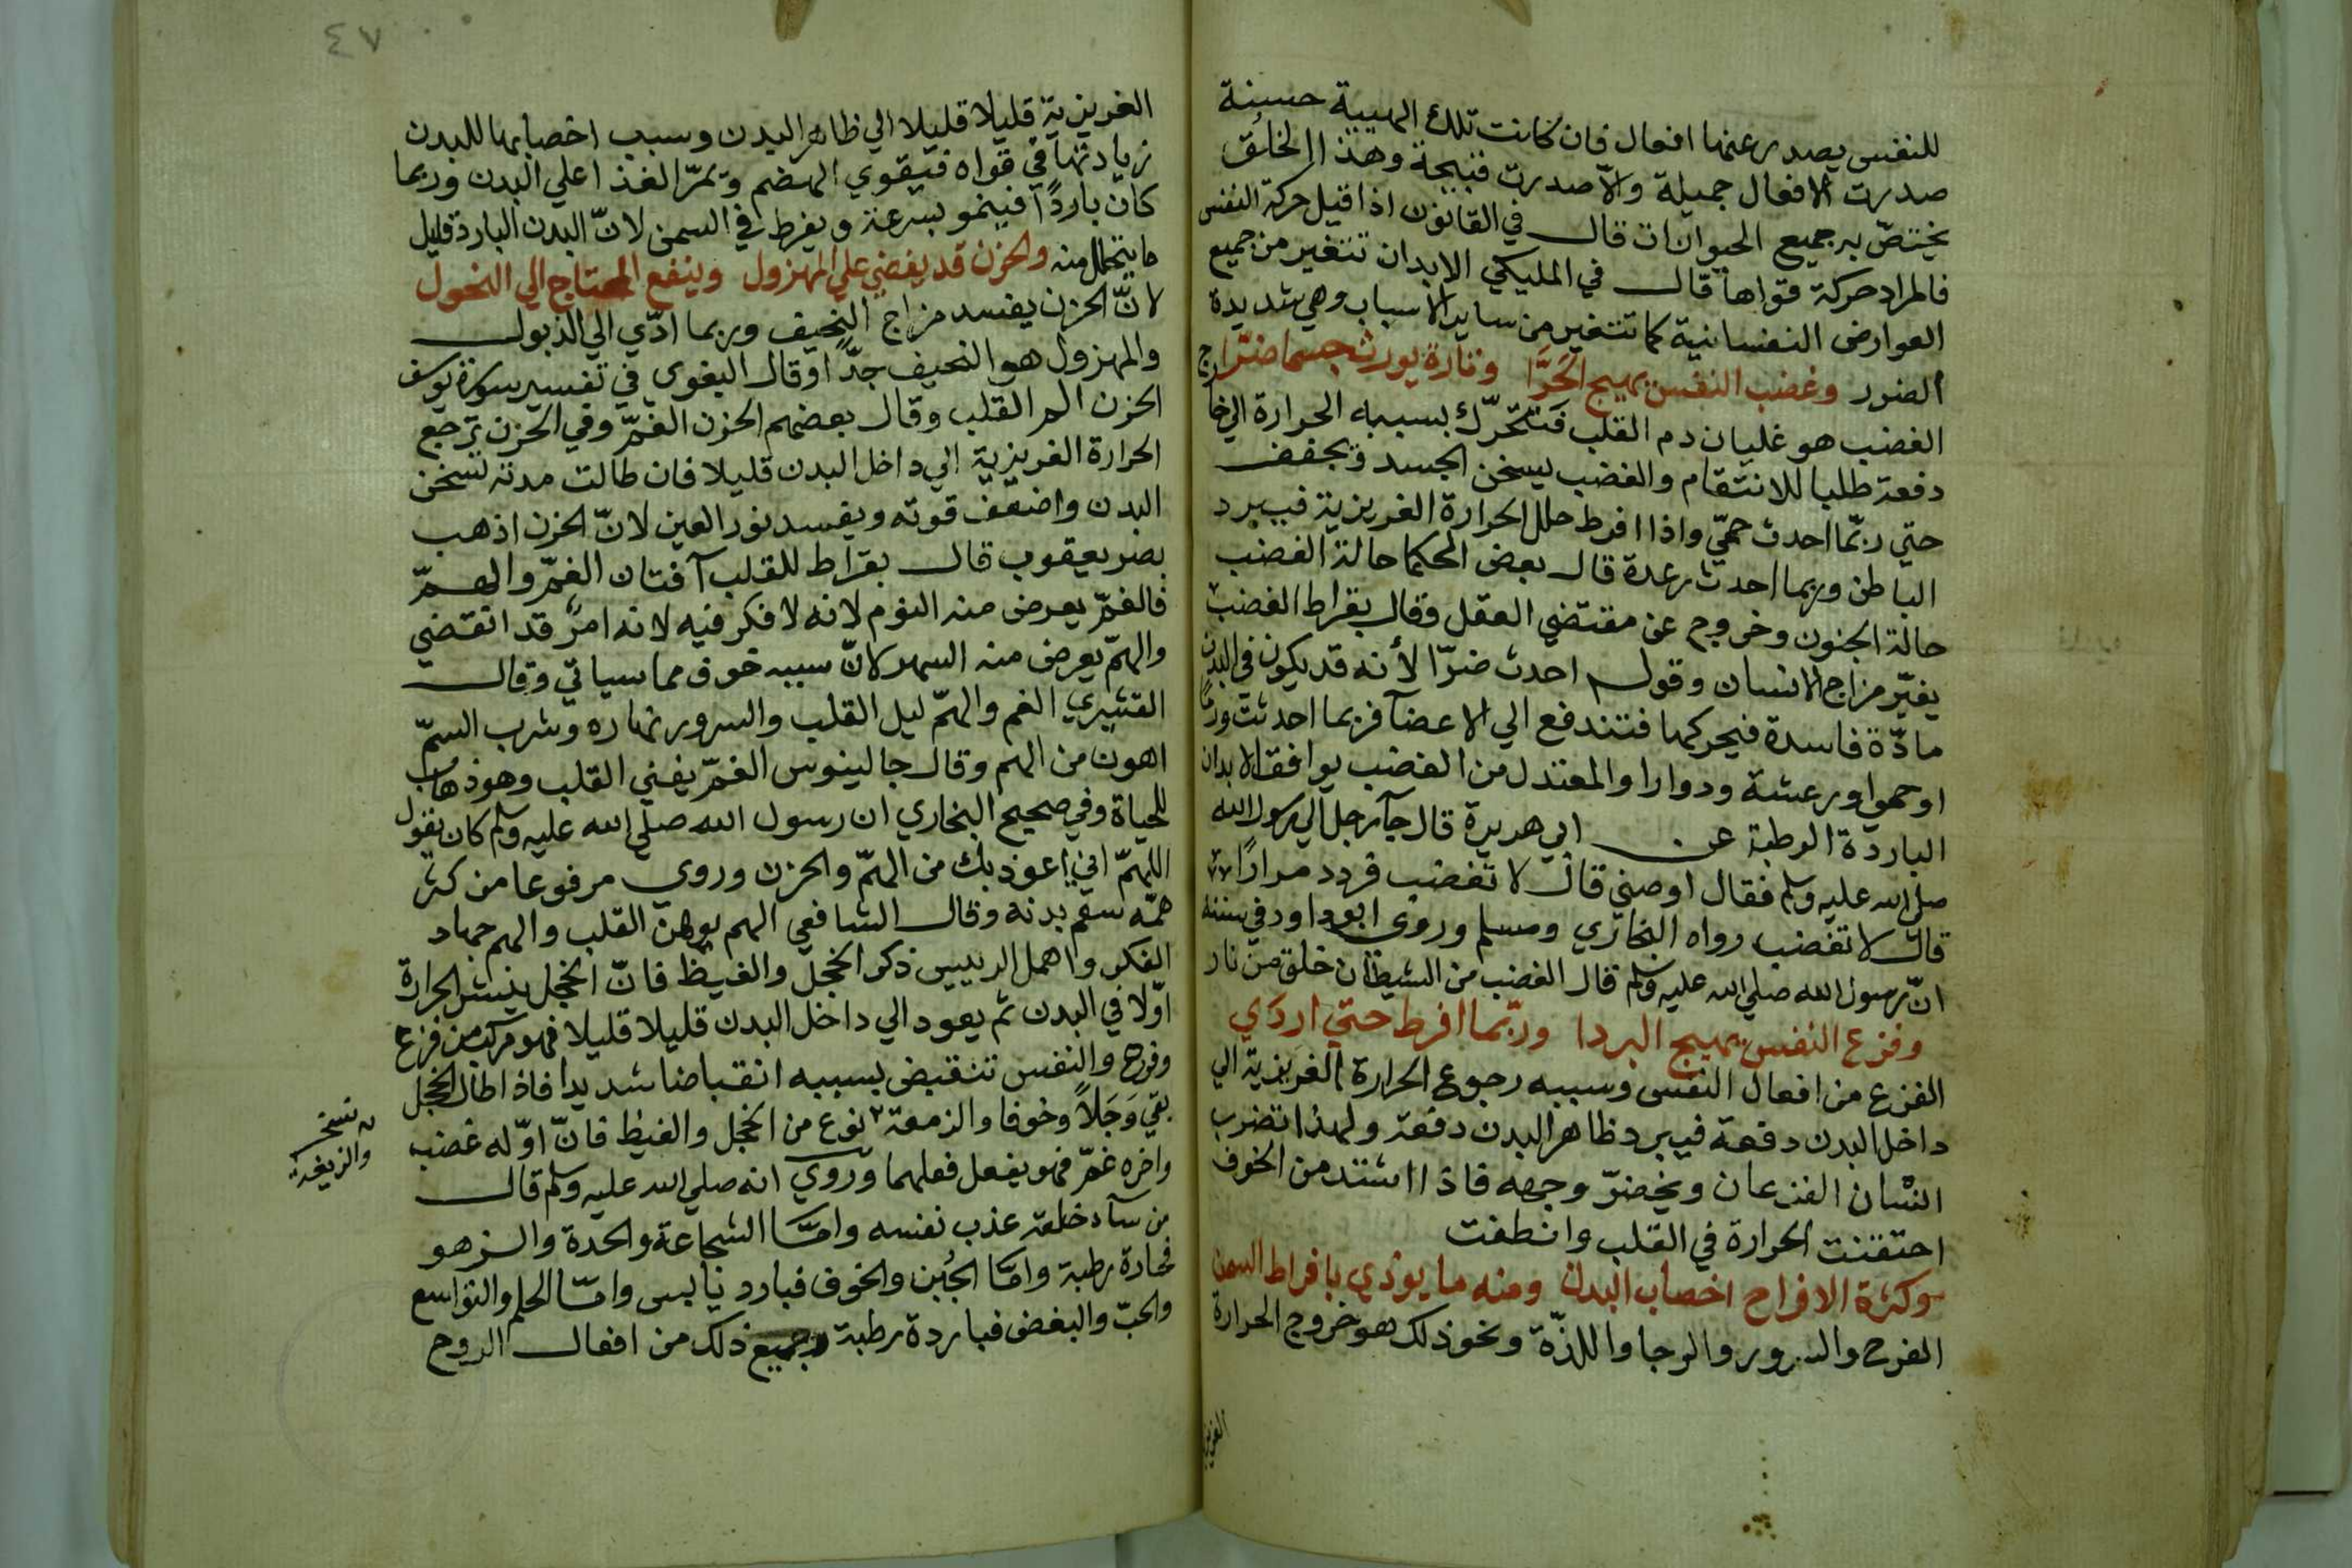 للنفس يصدر عنها افعال فان كانت تلك الهيية حسنة
صدرت الافعال جميلة والّا صدرت قبيحة وهذا الخلُق
يختصّ به جميع الحيوانات قال في القانون اذا قيل حركة النفس
فالمراد حركة قواها قال في المليكي الابدان تتغير من جميع
العوارض النفسانية كما تتغير من ساير الاسباب وهي شديدة
الضرر وغضب النفس يهيج الحَرَّا وتارة يورث جسما ضرّا
الغضب هو غليان دم القلب فتتحرّك بسببه الحرارة الي خارج
دفعة طلبا للانتقام والغضب يسخن الجسد ويجفف
حتي ربّما احدث حمّي واذا افرط حلل الحرارة الغريزية فيبرد
الباطن وربما احدث رعدة قال بعض الحكما حالة الغضب
حالة الجنون وخروج عن مقتضي العقل وقال بقراط الغضب
يغيّر مزاج الانسان وقوله احدث ضرّا لأنه قد يكون في البدن
مادّة فاسدة فيحركها فتندفع الي الاعضآ فربما احدثت ورمًا
او حمي او رعشة ودوارا والمعتدل من الغضب يوافق الابدان
الباردة الرطبة عن ابي هريرة قال جآ رجل الي رسول الله
صلي الله عليه وسلم فقال اوصني قال لا تغضب فردد مرارًا
قال لا تغضب رواه البخاري ومسلم وروي ابو داود في سننه
انّ رسول الله صلي الله عليه وسلم قال الغضب من الشيطان خلق من نار
وفزع النفس يهيج البردا وربّما افرط حتي اردَي
الفزع من افعال النفس وسببه رجوع الحرارة الغريزية الي
داخل البدن دفعة فيبرد ظاهر البدن دفعة ولهذا تضرب
اسنان الفزعان ويخضرّ وجهه فاذا اشتد من الخوف
احتقنت الحرارة في القلب وانطفت
وكثرة الافراح اخصاب البدن ومنه ما يوذي بافراط السمن
الفرح والسرور والرجا واللذّة ونحو ذلك هو خروج الحرارة
الغريزية
٤٧
الغريزية قليلا قليلا الي ظاهر البدن وسبب اخصابها للبدن
زيادتها في قواه فيقوي الهضم ويمرّ الغذا علي البدن وربما
كان باردًا فينمو بسرعة ويفرط في السمن لانّ البدن البارد قليل
ما يتحلل منه والحزن قد يقضي علي المهزول وينفع المحتاج الي النحول
لانّ الحزن يفسد مزاج النحيف وربما ادّي الي الذبول
والمهزول هو النحيف جدًّا وقال البغوي في تفسير سورة يوسف
الحزن الم القلب وقال بعضهم الحزن الغمّ وفي الحزن ترجع
الحرارة الغريزية الي داخل البدن قليلا فان طالت مدته تسخن
البدن واضعف قوته ويفسد نور العين لانّ الحزن اذهب
بصر يعقوب قال بقراط للقلب آفتان الغمّ والهمّ
فالغمّ يعرض منه النوم لانه لا فكر فيه لانه امرٌ قد انقضي
والهمّ يعرض منه السهر لانّ سببه خوف مما سياتي وقال
القشيري الغم والهمّ ليل القلب والسرور نهاره وشرب السمّ
اهون من الهم وقال جالينوس الغمّ يفني القلب وهو ذهاب
للحياة وفي صحيح البخاري ان رسول الله صلي الله عليه وسلم كان يقول
اللهمّ اني اعوذ بك من الهمّ والحزن وروي مرفوعا من كثر
همّه سقم بدنه وقال الشافعي الهم يوهن القلب والهم جهاد
الفكر واهمل الرييس ذكر الخجل والغيظ فانّ الخجل ينشر الحرارة
اوّلا في البدن ثم يعود الي داخل البدن قليلا قليلا فهو مركب من فزع
وفرح والنفس تنقبض بسببه انقباضا شديدا فاذا طال الخجل
بقي وَجَلاً وخوفا والزمعة نوع من الخجل والغيظ فانّ اوّله غضب
واخره غمّ فهو يفعل فعلهما وروي انه صلي الله عليه وسلم قال
من سآ خلقه عذب نفسه وامّا الشجاعة والحدة والزهو
فحادة رطبة وامّا الجُبن والخوف فبارد يابس وامّا الحلم والتواسع
والحبّ والبغض فباردة رطبة وجميع ذلك من افعال الروح
نسخه